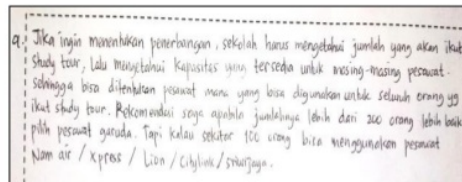 9. Jika ingin menentukan penerbangan, sekolah harus mengetahui jumlah yang akan ikut
study tour, lalu mengetahui kapasitas yang tersedia untuk masing-masing pesawat.
sehingga bisa ditentukan pesawat mana yang bisa digunakan untuk seluruh orang yg
ikut study tour. Rekomendasi saya apabila jumlahnya lebih dari 200 orang lebih baik
pilih pesawat garuda. Tapi kalau sekitar 100 orang bisa menggunakan pesawat
Nam air / xpress / Lion / Citylink / sriwijaya.